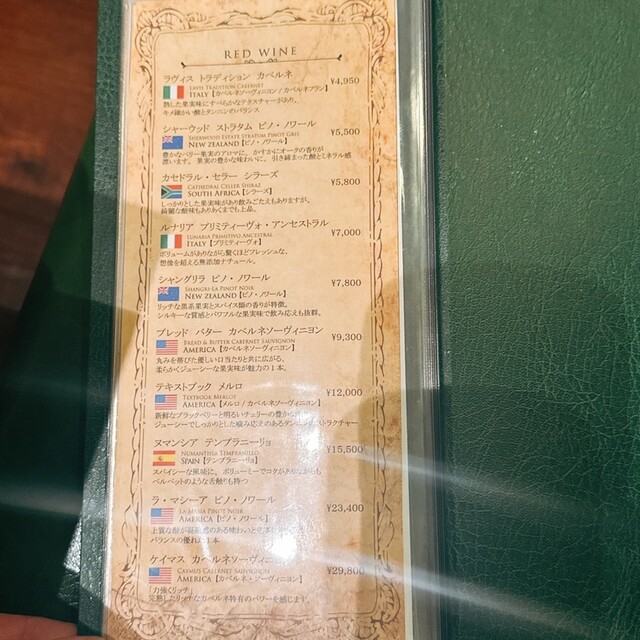 RED WINE
ラヴィス トラディション カベルネ
LAVIS TRADITION CABERNET
ITALY【カベルネソーヴィニヨン / カベルネフラン】
¥4,950
熟した果実味にすべらかなテクスチャーがあり、
キメ細かい酸とタンニンのバランス
シャーウッド ストラタム ピノ・ノワール
SHERWOOD ESTATE STRATUM PINOT GRIS
NEW ZEALAND【ピノ・ノワール】
¥5,500
豊かなベリー果実のアロマに、かすかにオークの香りが
漂います。果実の豊かな味わいに、引き締まった酸とミネラル感
カセドラル・セラー シラーズ
CATHEDRAL CELLER SHIRAZ
SOUTH AFRICA【シラーズ】
¥5,800
しっかりとした果実味があり飲みごたえもありますが、
綺麗な酸味もありあくまでも上品。
ルナリア プリミティーヴォ・アンセストラル
LUNARIA PRIMITIVO ANCESTRAL
ITALY【プリミティーヴォ】
¥7,000
ボリュームがありながら驚くほどフレッシュな、
想像を超える無添加ナチュール。
シャングリラ ピノ・ノワール
SHANGRI-LA PINOT NOIR
NEW ZEALAND【ピノ・ノワール】
¥7,800
リッチな黒系果実とスパイス系の香りが特徴。
シルキーな質感とパワフルな果実味で飲み応えも抜群。
ブレッド バター カベルネソーヴィニヨン
BREAD & BUTTER CABERNET SAUVIGNON
AMERICA【カベルネソーヴィニヨン】
¥9,300
丸みを帯びた優しい口当たりと共に広がる、
柔らかくジューシーな果実味が魅力の1本。
テキストブック メルロ
TEXTBOOK MERLOT
AMERICA【メルロ / カベルネソーヴィニヨン】
¥12,000
新鮮なブラックベリーと明るいチェリーの豊かな
ジューシーでしっかりとした噛み応えのあるタンニンのストラクチャー
ヌマンシア テンプラニーリョ
NUMANTHIA TEMPRANILLO
SPAIN【テンプラニーリョ】
¥15,500
スパイシーな風味に、ボリューミーでコクがありながらも
ベルベットのような舌触りも持つ
ラ・マシーア ピノ・ノワール
LA MASIA PINOT NOIR
AMERICA【ピノ・ノワール】
¥23,400
上質な酸が
バランスの優れた1本
ケイマス カベルネソーヴィニ
CAYMUS CABERNET SAUVIGNON
AMERICA【カベルネ・ソーヴィニヨン】
¥29,800
「力強くリッチ」
完熟したリッチなカベルネ特有のパワーを感じます。